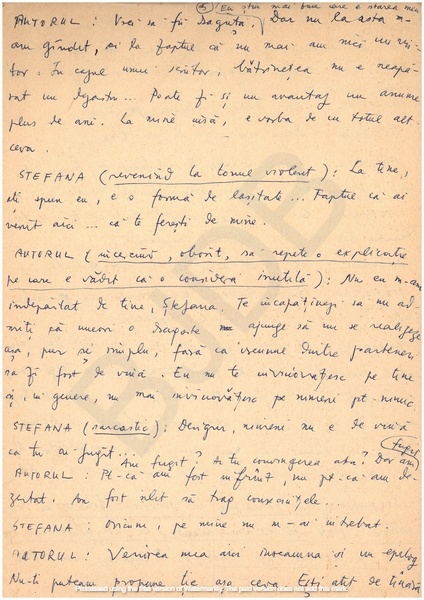 (5) Eu știu mai bine care e starea mea
AUTORUL: Vrei să fii drăguță. Dar nu la asta m-
am gândit, ci la faptul că nu mai am nici un viitor
. În cazul unui scriitor, bătrînețea nu e neapărat
un dezastru... Poate fi și un avantaj un anume
plus de ani. La mine însă, e vorba de cu totul alt-
ceva.
STEFANA (revenind la tonul violent): La tine,
ți-o spun eu, e o formă de lașitate... Faptul că ai
venit aici... că te ferești de mine.
AUTORUL (încercînd, obosit, să repete o explicație
pe care e vădit că o consideră inutilă): Nu eu m-am
îndepărtat de tine, Ștefana. Te încăpățînezi să nu ad-
miți că uneori o dragoste ajunge să nu se realizeze
așa, pur și simplu, fără ca vreunul dintre parteneri
să fi fost de vină. Eu nu te învinovățesc pe tine
și, în genere, nu mai învinovățesc pe nimeni pt. nimic.
STEFANA (sarcastic): Desigur, nimeni nu e de vină
că tu ai fugit...
Am fugit? Ai tu convingerea asta? Dar am fugit
AUTORUL: Pt. că am fost înfrînt, nu pt. că am de-
zertat. Am fost silit să trag consecințele...
STEFANA: Oricum, pe mine nu m-ai întrebat.
AUTORUL: Venirea mea aici înseamna și un epilog
Nu-ți puteam propune ție așa ceva. Ești atît de tînără